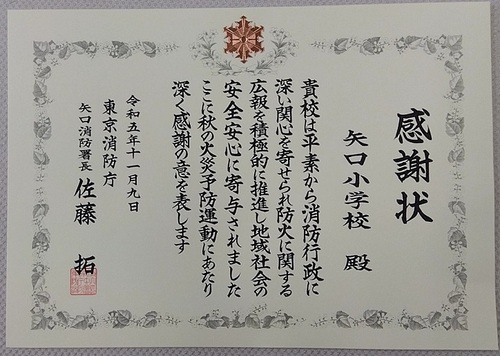 感謝状
矢口小学校 殿
貴校は平素から消防行政に
深い関心を寄せられ防火に関する
広報を積極的に推進し地域社会の
安全安心に寄与されました
ここに秋の火災予防運動にあたり
深く感謝の意を表します
令和五年十一月九日
東京消防庁
矢口消防署長 佐藤 拓